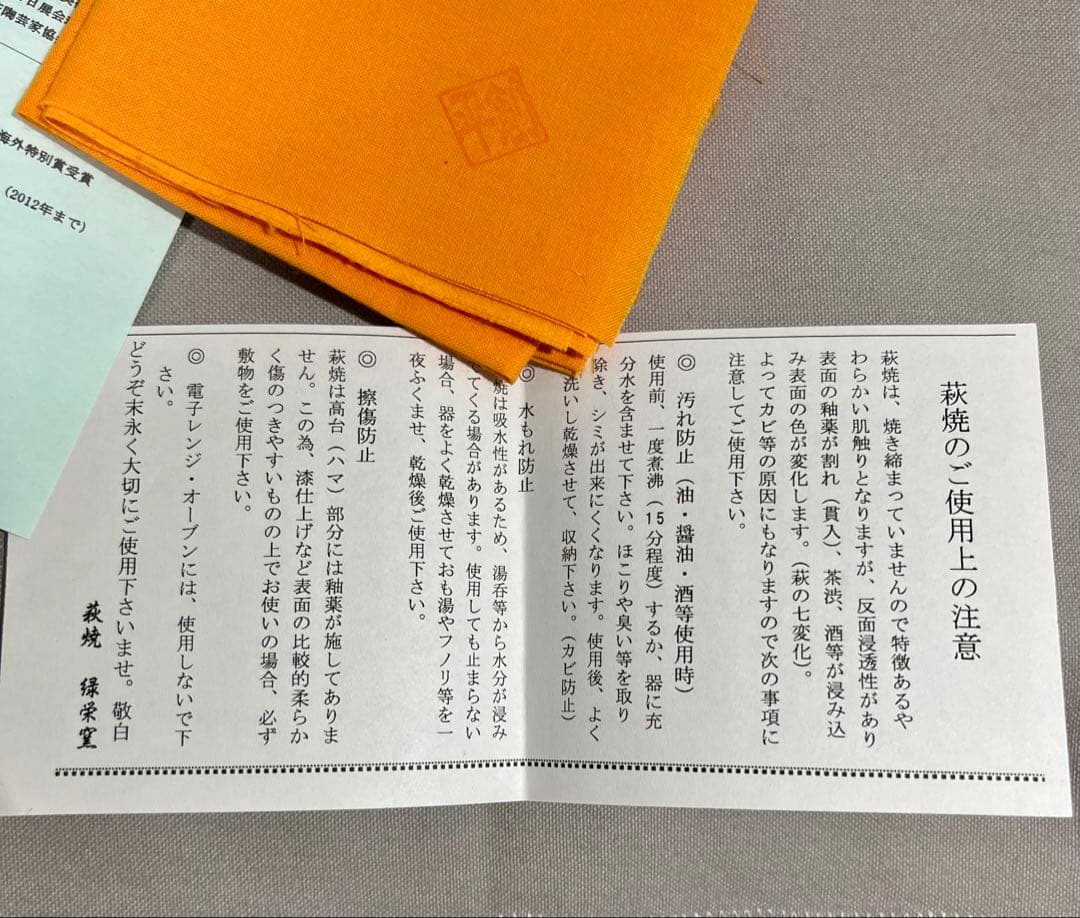 萩焼のご使用上の注意
萩焼は、焼き締まっていませんので特徴あるや
わらかい肌触りとなりますが、反面浸透性があり
表面の釉薬が割れ（貫入）、茶渋、酒等が浸み込
み表面の色が変化します。（萩の七変化）。
よってカビ等の原因にもなりますので次の事項に
注意してご使用下さい。
◎ 汚れ防止（油・醤油・酒等使用時）
使用前、一度煮沸（15分程度）するか、器に充
分水を含ませて下さい。ほこりや臭い等を取り
除き、シミが出来にくくなります。使用後、よく
洗いし乾燥させて、収納下さい。（カビ防止）
◎ 水もれ防止
焼は吸水性があるため、湯呑等から水分が浸み
てくる場合があります。使用しても止まらない
場合、器をよく乾燥させておも湯やフノリ等を一
夜ふくませ、乾燥後ご使用下さい。
◎ 擦傷防止
萩焼は高台（ハマ）部分には釉薬が施してありま
せん。この為、漆仕上げなど表面の比較的柔らか
く傷のつきやすいものの上でお使いの場合、必ず
敷物をご使用下さい。
◎ 電子レンジ・オーブンには、使用しないで下
さい。
どうぞ末永く大切にご使用下さいませ。敬白
萩焼 緑栄窯
日展会
陶芸家協
海外特別賞受賞
（2012年まで）